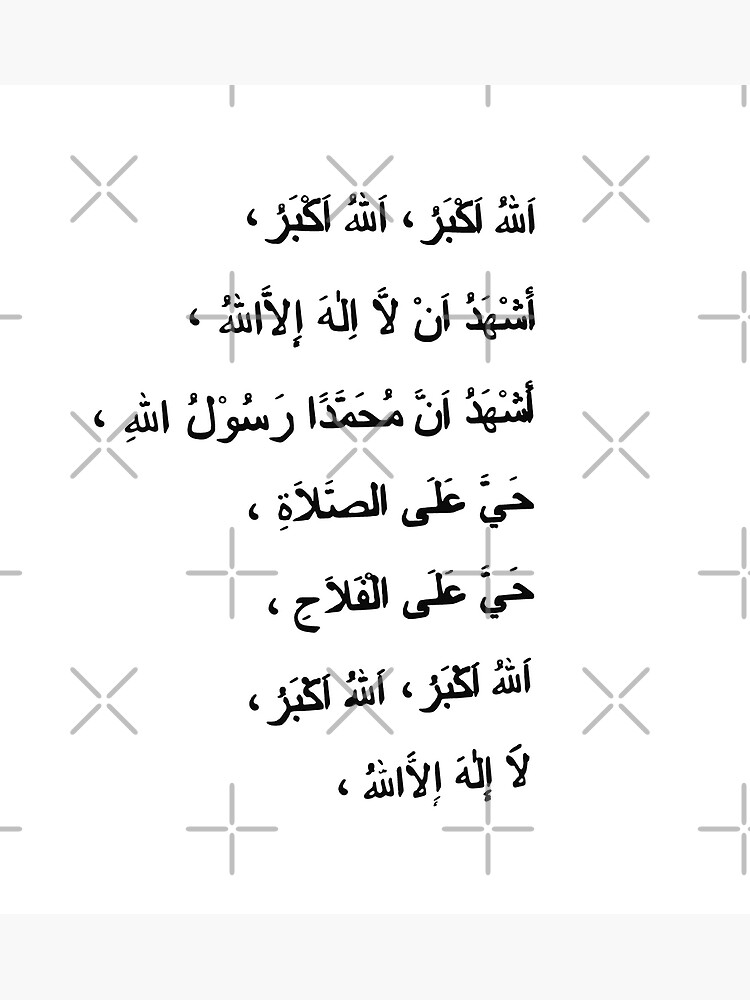 اَللهُ اَكْبَرُ ، اَللهُ اَكْبَرُ ،
أَشْهَدُ اَنْ لاَّ اِلٰهَ إِلاَّاللهُ ،
أَشْهَدُ اَنَّ مُحَمَّدًا رَسُوْلُ اللهِ ،
حَيَّ عَلَى الصَّلاَةِ ،
حَيَّ عَلَى الْفَلاَحِ ،
اَللهُ اَكْبَرُ ، اَللهُ اَكْبَرُ ،
لاَ إِلٰهَ إِلاَّاللهُ ،